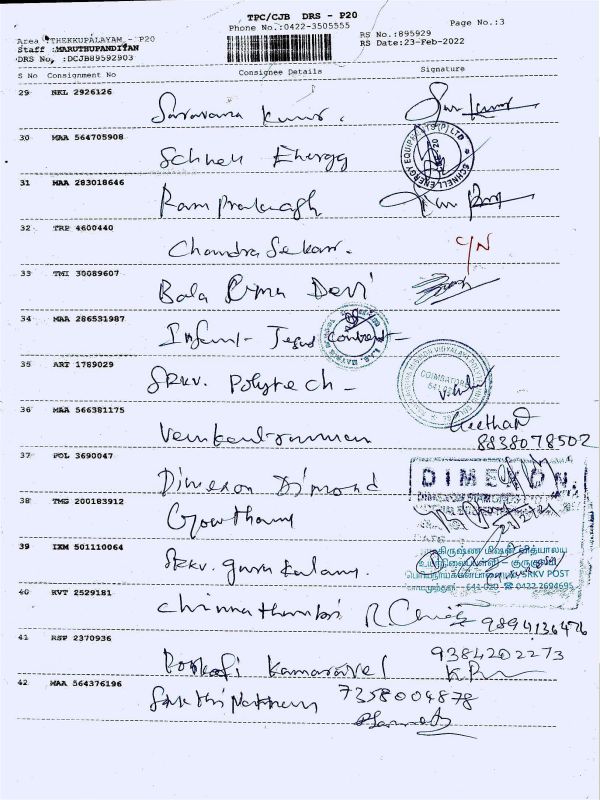 TPC/CJB DRS - P20
Phone No.:0422-3505555
Page No.:3
Area :THEKKUPALAYAM - P20
Staff :MARUTHUPANDIYAN
DRS No. :DCJB89592903
RS No.:895929
RS Date:23-Feb-2022
S No Consignment No Consignee Details Signature
29 NKL 2926126
Saravana Kumar.
30 MAA 564705908
Schnell Energy
SCHNELL ENERGY EQUIPMENTS (P) LTD
31 MAA 283018646
Ram Prakash
32 TRP 4600440
Chandra Sekar.
C/N
33 TMI 30089607
Bala Uma Devi
34 MAA 286531987
Infant Jesus Convent
35 ART 1789029
SRKV. Polytech
COIMBATORE
36 MAA 566381175
Venkatraman
Geetha
8838078502
37 POL 3690047
Dimexon Dimond
DIMEXON
38 TMG 200183912
Gowtham
39 IXM 501110064
SRKV. Gurukulam.
SRKV POST
641 020 ☎ 0422 2694695
40 KVT 2529181
Chinnathambi
9894136476
41 RSP 2370936
Kamaravel
9384202273
42 MAA 564376196
Sakthi
7358004878